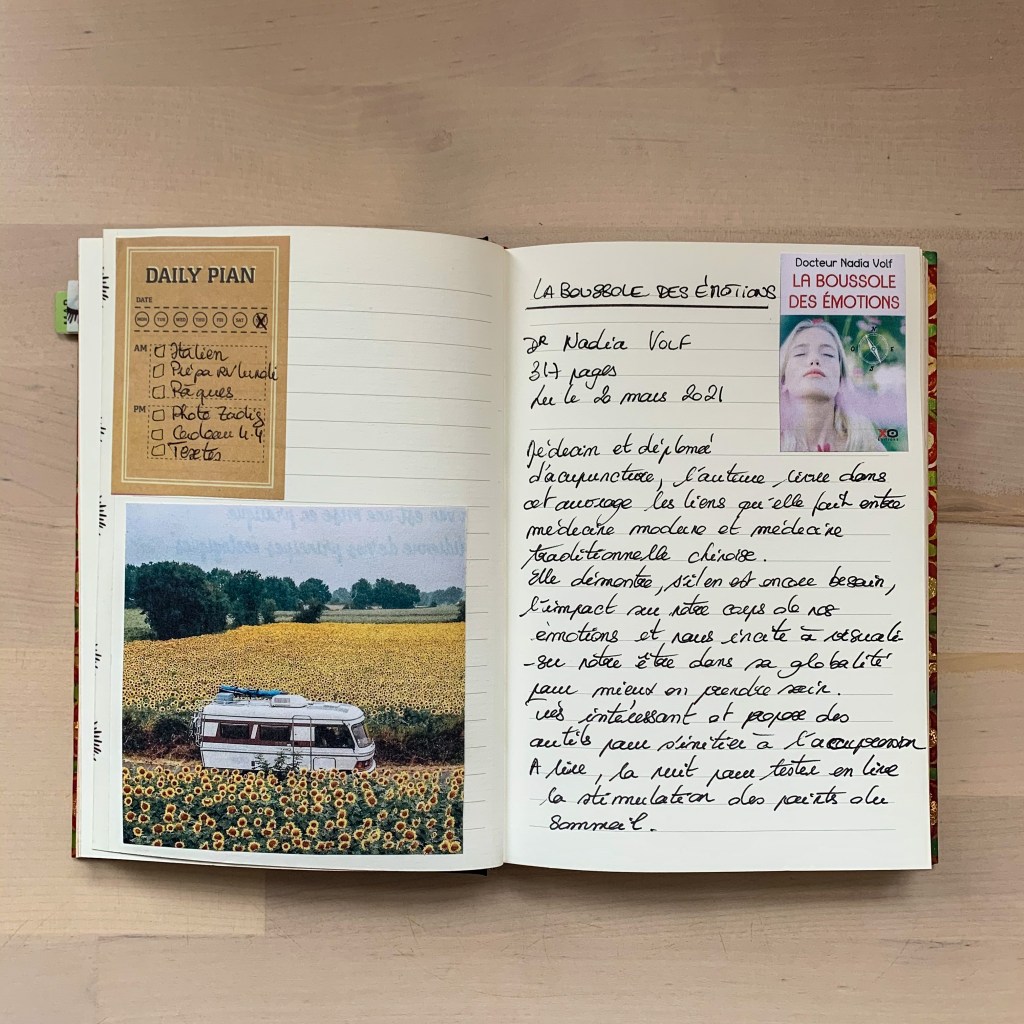 DAILY PIAN
DATE
MON TUE WED THU FRI SAT
AM
Italien
Prépa RV lundi
Pâques
PM
Photo Zadig
Cadeau 4.4
Textes
LA BOUSSOLE DES ÉMOTIONS
DR Nadia VOLF
317 pages
Lu le 20 mars 2021
Docteur Nadia Volf
LA BOUSSOLE
DES ÉMOTIONS
N
O E
S
XO
Médecin et diplomée
d'acupuncture, l'auteure livre dans
cet ouvrage les liens qu'elle fait entre
médecine moderne et médecine
traditionnelle chinoise.
Elle démontre, s'il en est encore besoin,
l'impact sur notre corps de nos
émotions et nous incite à visuali
-ser notre être dans sa globalité
pour mieux en prendre soin.
Très intéressant et propose des
outils pour s'initier à l'acupression
A lire, la nuit pour tester en live
la stimulation des points du
sommeil.